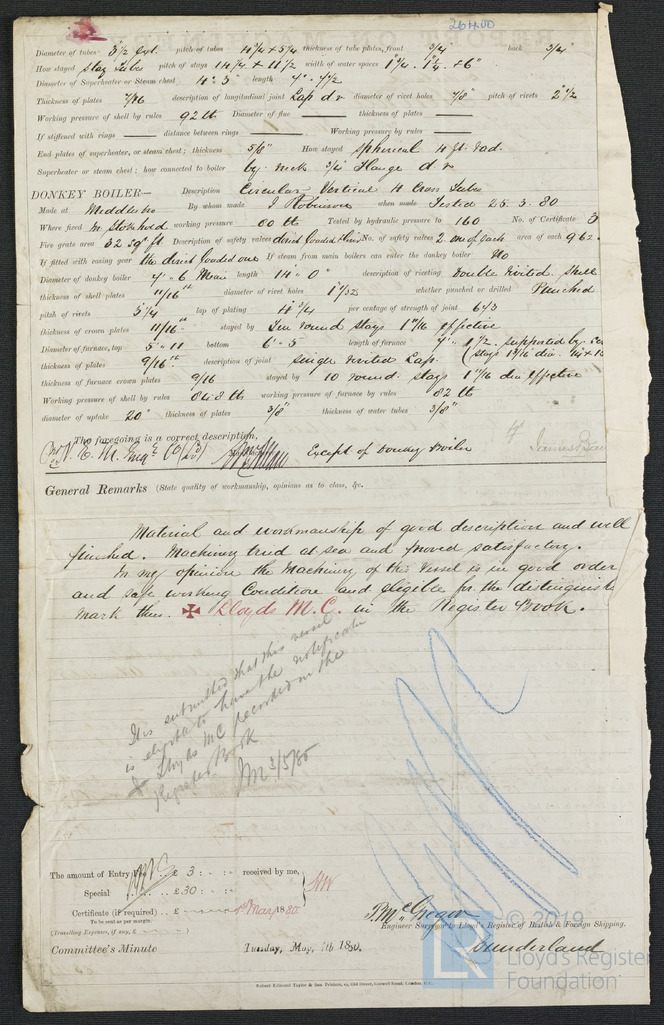 264.00
Diameter of tubes 3½ Ext. pitch of tubes 4¾ x 5¼ thickness of tube plates, front ¾" back ¾"
How staved Stay Tubes pitch of stays 14¼ x 11½ width of water spaces 1¼ . 1¼ . + 6"
Diameter of Superheater or Steam chest 4" 3" length
Thickness of plates 7/16 description of longitudinal joint Lap d r diameter of rivet holes 7/8" pitch of rivets 2½
Working pressure of shell by rules 92 lb Diameter of flue — thickness of plates —
If stiffened with rings — distance between rings — Working pressure by rules —
End plates of superheater, or steam chest; thickness 5/8" How stayed Spherical 4 ft Rad.
Superheater or steam chest; how connected to boiler by neck ¾ Flange d r
DONKEY BOILER— Description Circular Vertical 4 Cross Tubes
Made at Middlesbro By whom made J Robinson when made Tested 25.3.80
Where fixed In Stokehold working pressure 80 lb Tested by hydraulic pressure to 160 No. of Certificate 3
Fire grate area 32 sq ft Description of safety valves direct loaded No. of safety valves 2 one of each area of each 9.62
If fitted with easing gear the direct loaded one If steam from main boilers can enter the donkey boiler No
Diameter of donkey boiler 7" 6 length 14" 0" description of riveting Double rivited. Shell
thickness of shell plates 11/16" diameter of rivet holes 1 1/32 whether punched or drilled Punched
pitch of rivets 3¼ lap of plating 4¾ per centage of strength of joint 67.3
thickness of crown plates 11/16" stayed by Ten round stays 1 11/16 effective
Diameter of furnace, top 5" 11 bottom 6" 5 length of furnace 7" 1/2. supported by
thickness of plates 9/16" description of joint single rivited Lap. (stays 1 3/16 dia.
thickness of furnace crown plates 9/16 stayed by 10 round stays 1 11/16 dia effective
Working pressure of shell by rules 84.8 lb working pressure of furnace by rules 82 lb
diameter of uptake 20" thickness of plates 3/8" thickness of water tubes 3/8"
The foregoing is a correct description,
Except of Donkey Boiler
General Remarks (State quality of workmanship, opinions as to class, &c.
Material and workmanship of good description and well
finished. Machinery tried at sea and proved satisfactory.
In my opinion the Machinery of this Vessel is in good order
and safe working Condition and eligible for the distinguish
mark thus. ✠ Lloyds M.C. in the Register Book.
It is submitted that this vessel
is eligible to have the notification
✠ Lloyds MC recorded in the
Register Book
3/5/80
The amount of Entry Fee £ 3 : - : - received by me,
Special £30 : - : -
Certificate (if required) .. £ Mar 1880
To be sent as per margin.
(Travelling Expenses, if any, £
T. McGregor
Engineer Surveyor to Lloyd's Register of British & Foreign Shipping.
Sunderland
Committee's Minute Tuesday, May, 4th 1880.
Robert Edmund Taylor & Son Printers, 19, Old Street, Goswell Road, London, E.C.
© 2019
Lloyd's Register
Foundation